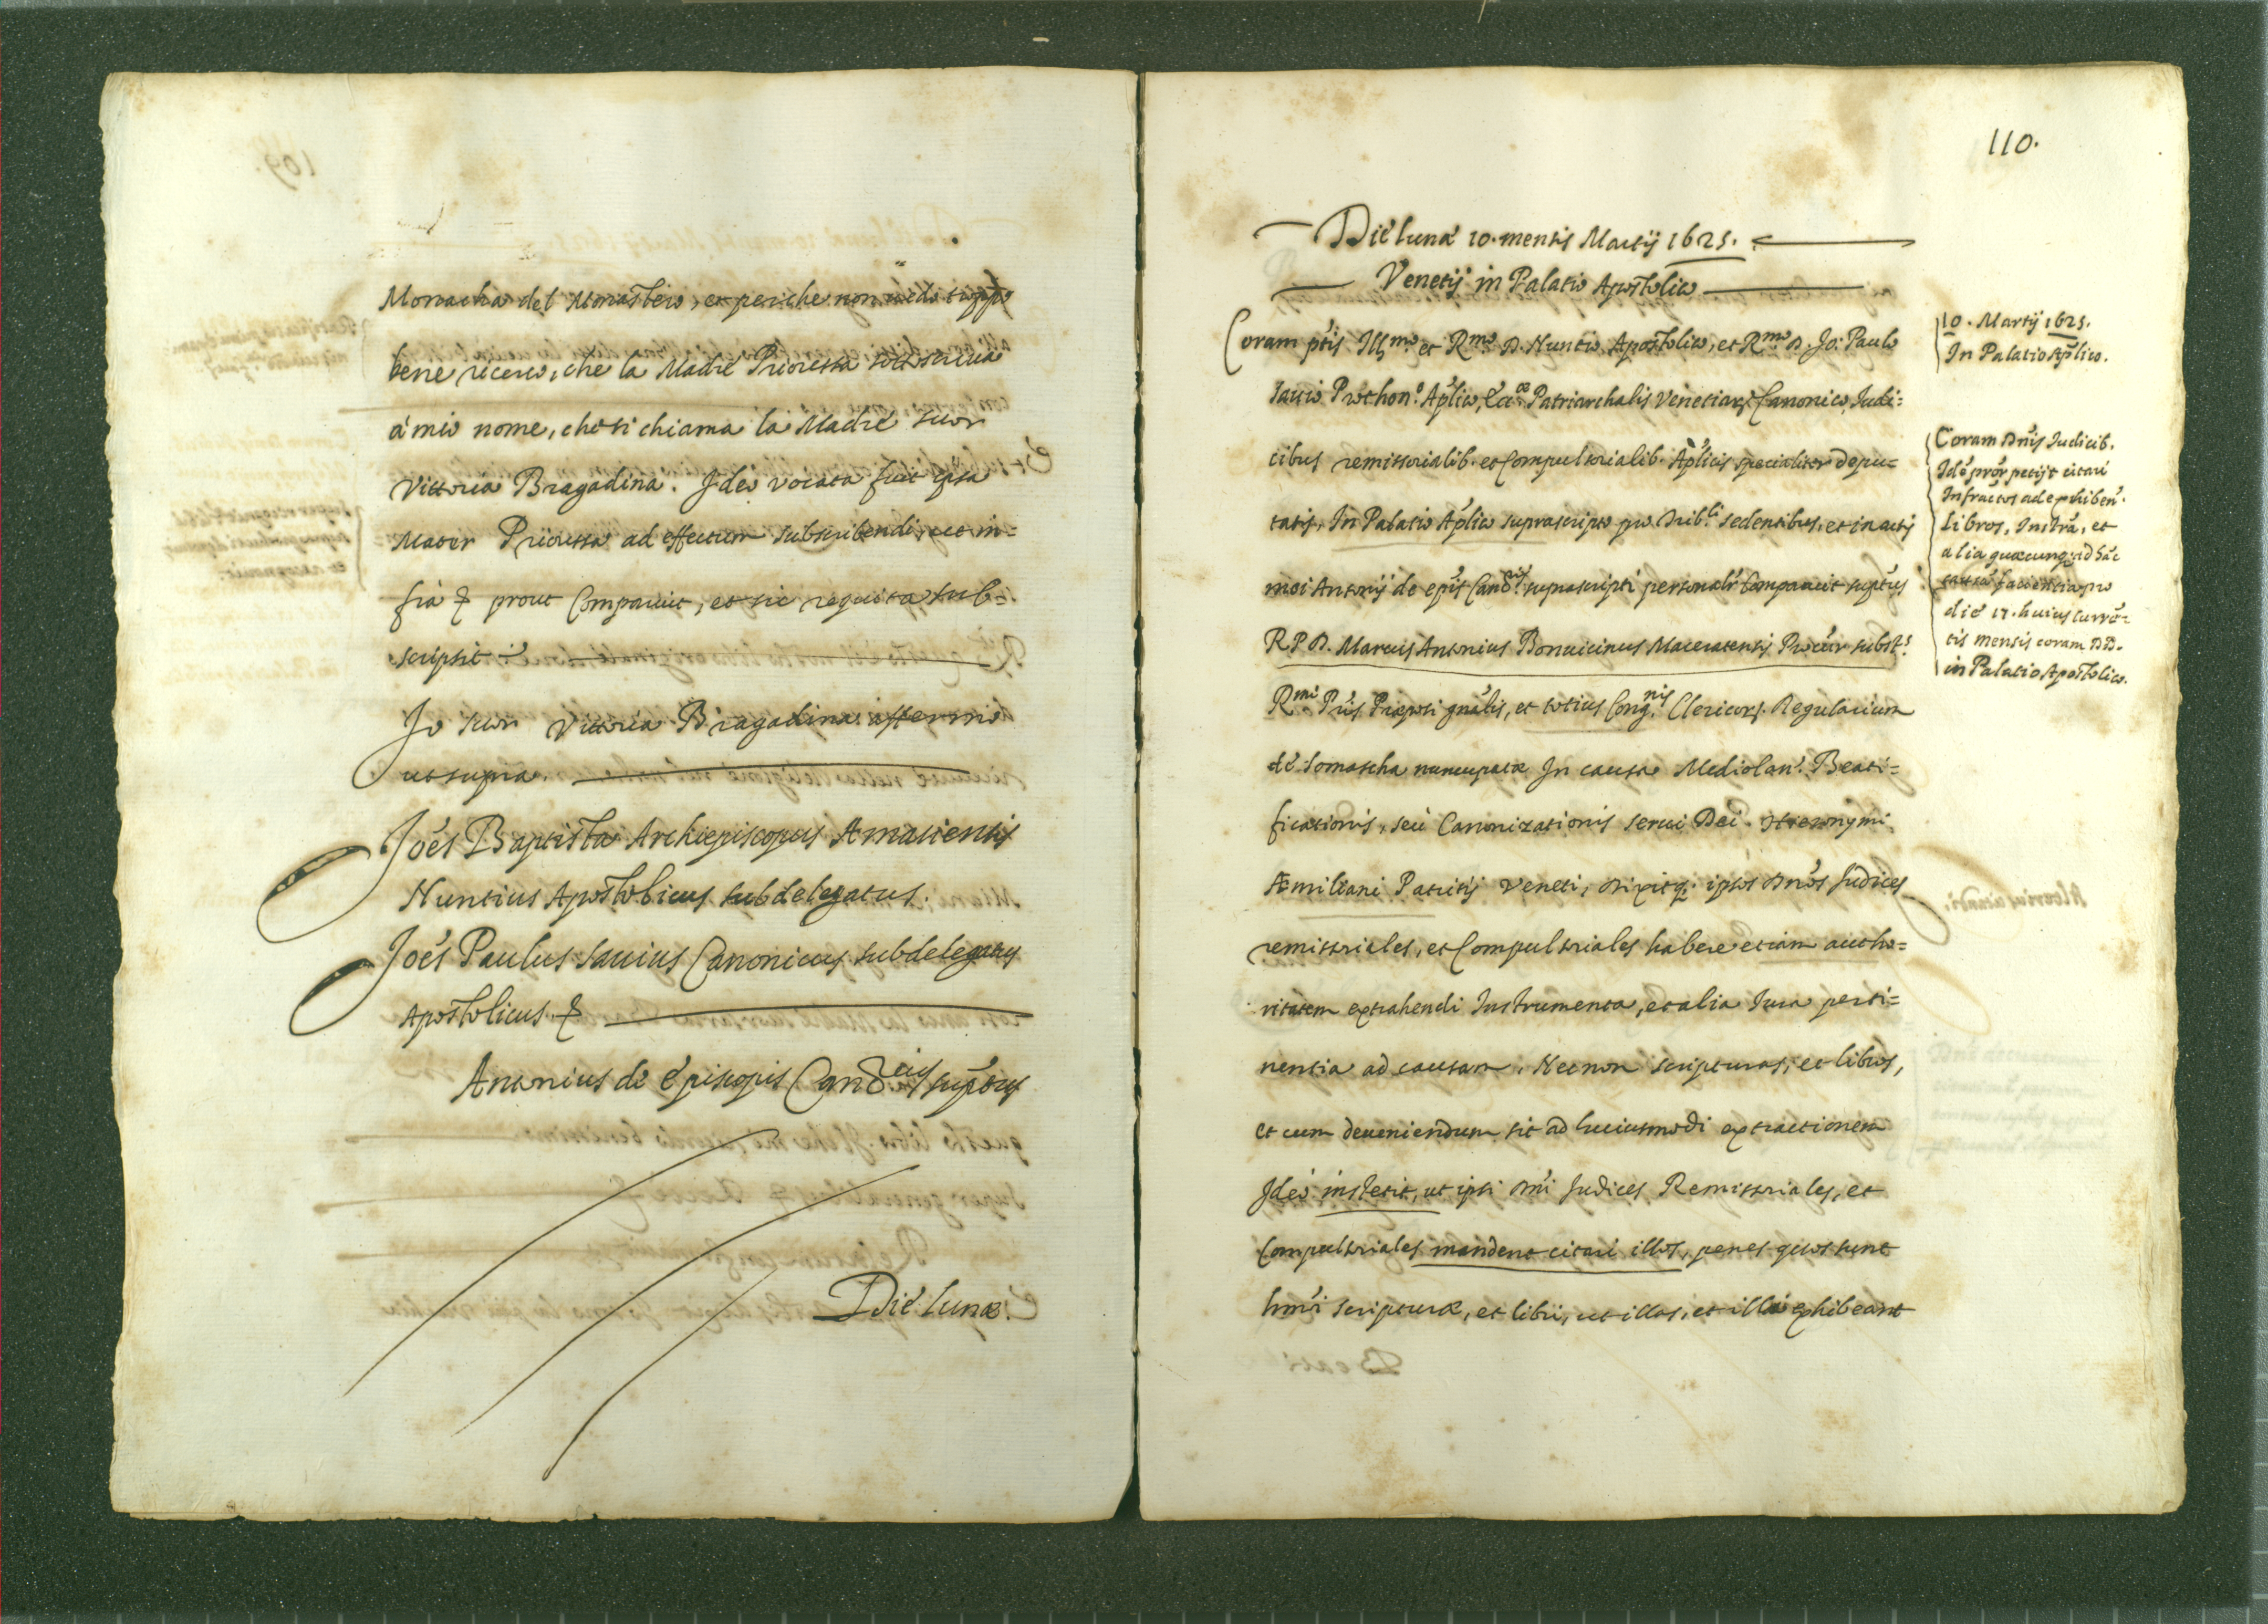 Monacha del Monasterio, et perche non uedo troppo
bene ricerco, che la Madre Prioressa sottoscriua
à mio nome, che si chiama la Madre suor
Vittoria Bragadina. Ideo vocata fuit ipsa
Mater Priorissa ad effectum subscribendi, ut in=
fra & prout Comparuit, et sic requisita sub=
scripsit
Io suor Vittoria Bragadina affermo
ut supra.
Joẽs Baptista Archiepiscopus Amasiensis
Nuntius Apostolicus subdelegatus.
Joẽs Paulus Sauius Canonicus subdelegatus
Apostolicus &
Antonius de Episcopis Canõ.cius sup̃tus
Die lunæ.
110.
Die lunæ 10. mensis Martij 1625.
Venetijs in Palatio Apostolico
Coram p̃tis Ill.mo et R.mo D. Nuntio Apostolico, et R.mo D. Jo: Paulo
Sauio Prothon.o Ap̃lico, Patriarchalis Venetiarꝫ Canonico, Judi=
cibus remissorialib. et Compulsorialib. Ap̃licis specialiter depu=
tatis, In Palatio Ap̃lico suprascripto pro Trib.li sedentibus, et in actis
mei Antonij de ep̃is Canõ. suprascripti personalr̃ Comparuit sup̃tus
R. P. D. Marcus Antonius Bonuicinus Maceratensis Procũr subst.s
R.mi P̃ris Præp̃ti gñalis, et totius Cong.nis Clericorꝫ Regularium
de Somascha nuncupatæ In causa Mediolañ. Beati=
ficationis, seu Canonizationis serui Dei Hieronymi
Æmiliani Patritij Veneti, dixitq. ipsos Dños Judices
remissoriales, et Compulsoriales habere etiam autho=
ritatem extrahendi Instrumenta, et alia Jura perti=
nentia ad causam, Necnon scripturas, et libros,
et cum deueniendum sit ad huiusmodi extractionem
Ideo institit, ut ipsi Dñi Judices Remissoriales, et
Compulsoriales mandent citari illos, penes quos sunt
hmõi scripturæ, et libri, ut illas, et illos exhibeant
10. Martij 1625.
In Palatio Ap̃lico.
Coram Dñis Judicib.
Idẽ procr̃ petijt citari
Infractos ad exhibeñ.
libros, Instr̃a, et
alia quæcunq; ad hãc
causã facientia pro
die 17. huius currẽ=
tis mensis coram DD.
in Palatio Apostolico.